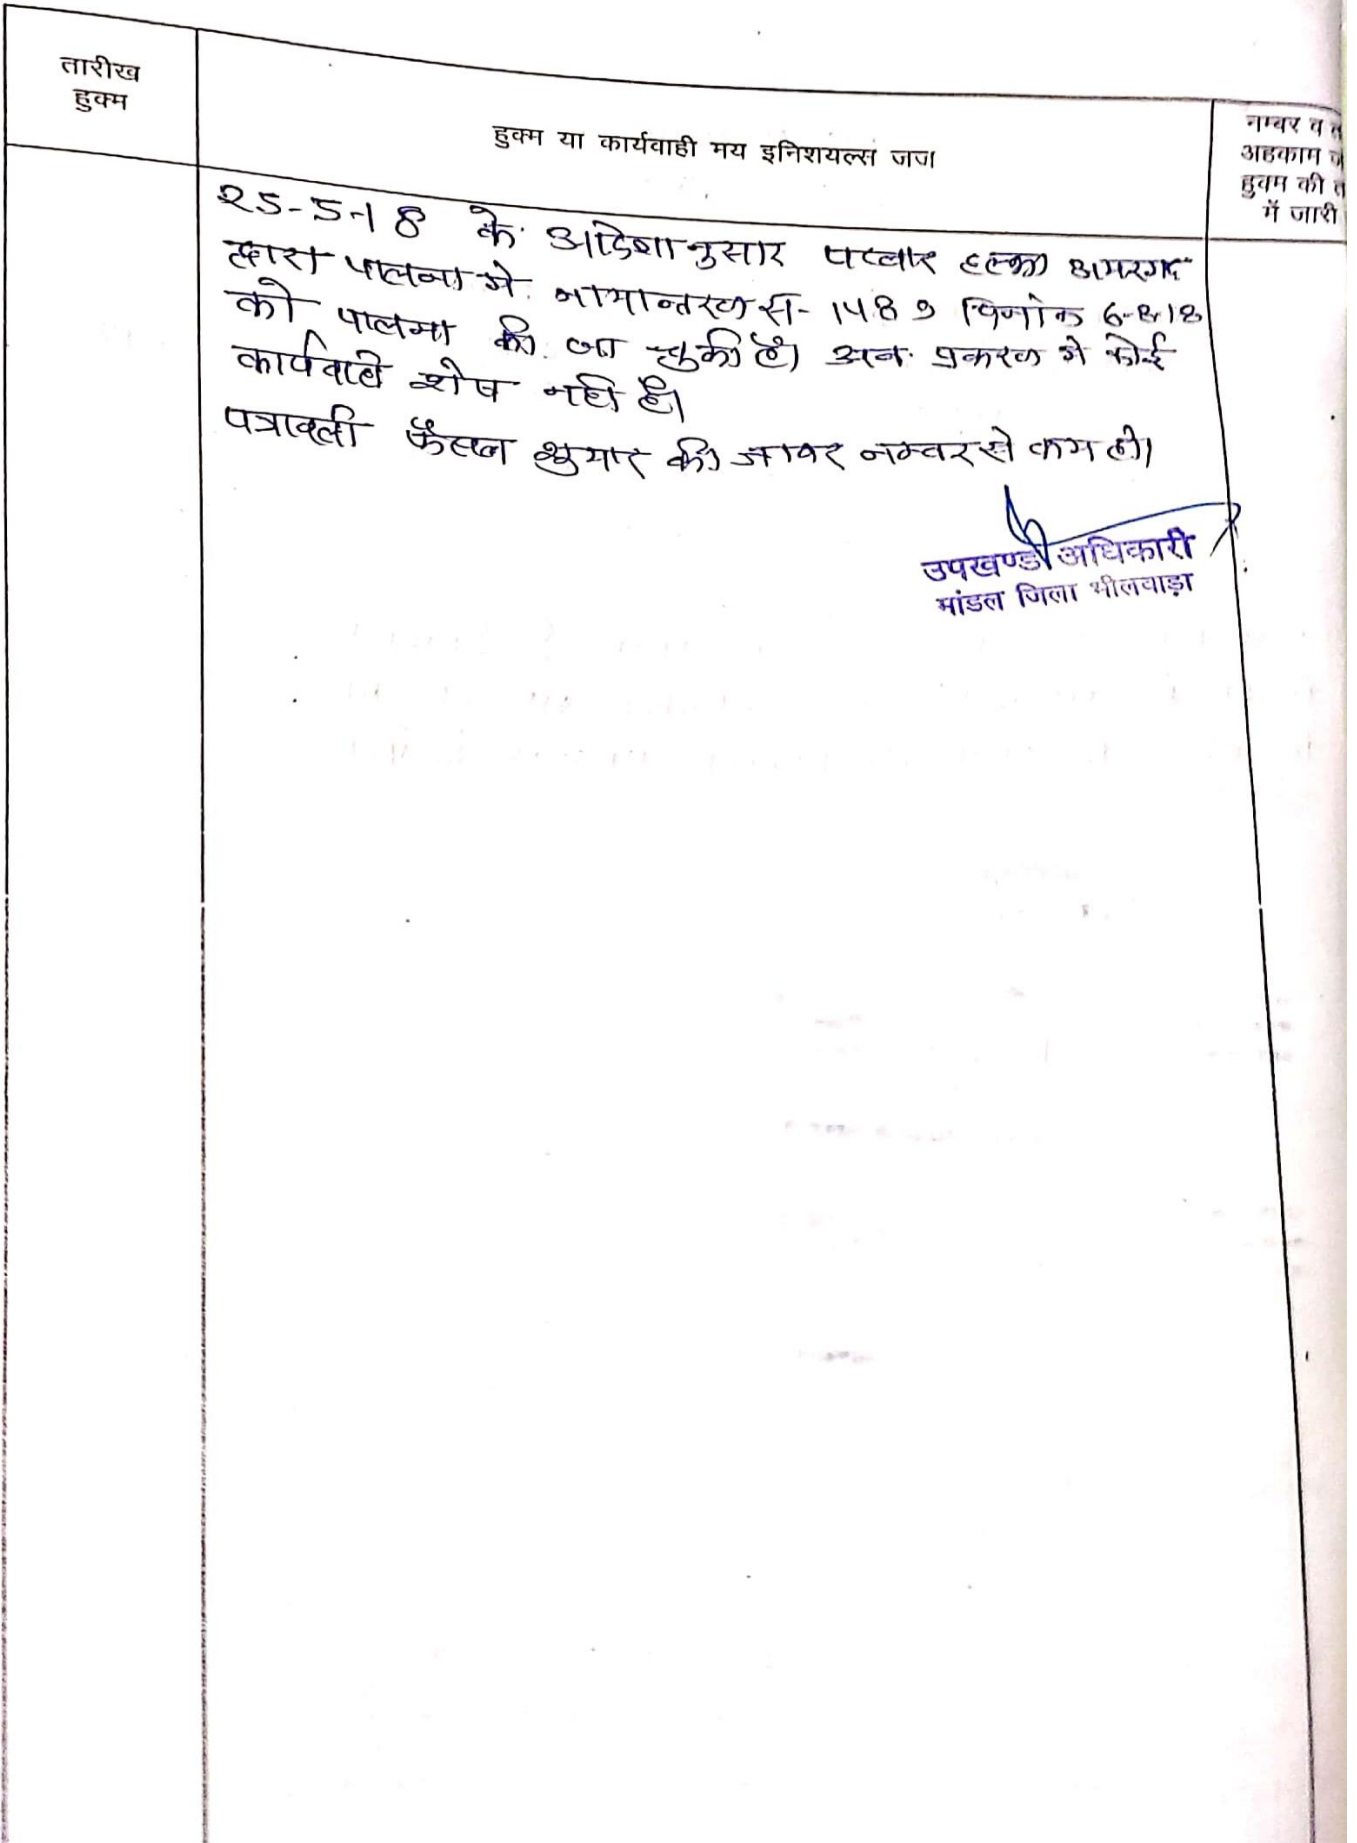 तारीख
हुक्म
हुक्म या कार्यवाही मय इनिशयल्स जज
नम्बर व
अहकाम
हुक्म की
में जारी
25-5-18 के आदेशानुसार पटवार हल्का अमरगढ
द्वारा पालना मे नामान्तरण स- 1489 दिनांक 6-8-18
को पालना की जा चुकी है। अब प्रकरण मे कोई
कार्यवाही शेष नही है।
पत्रावली फैसल शुमार की जाकर नम्बर से कम हो।
उपखण्ड अधिकारी
मांडल जिला भीलवाड़ा